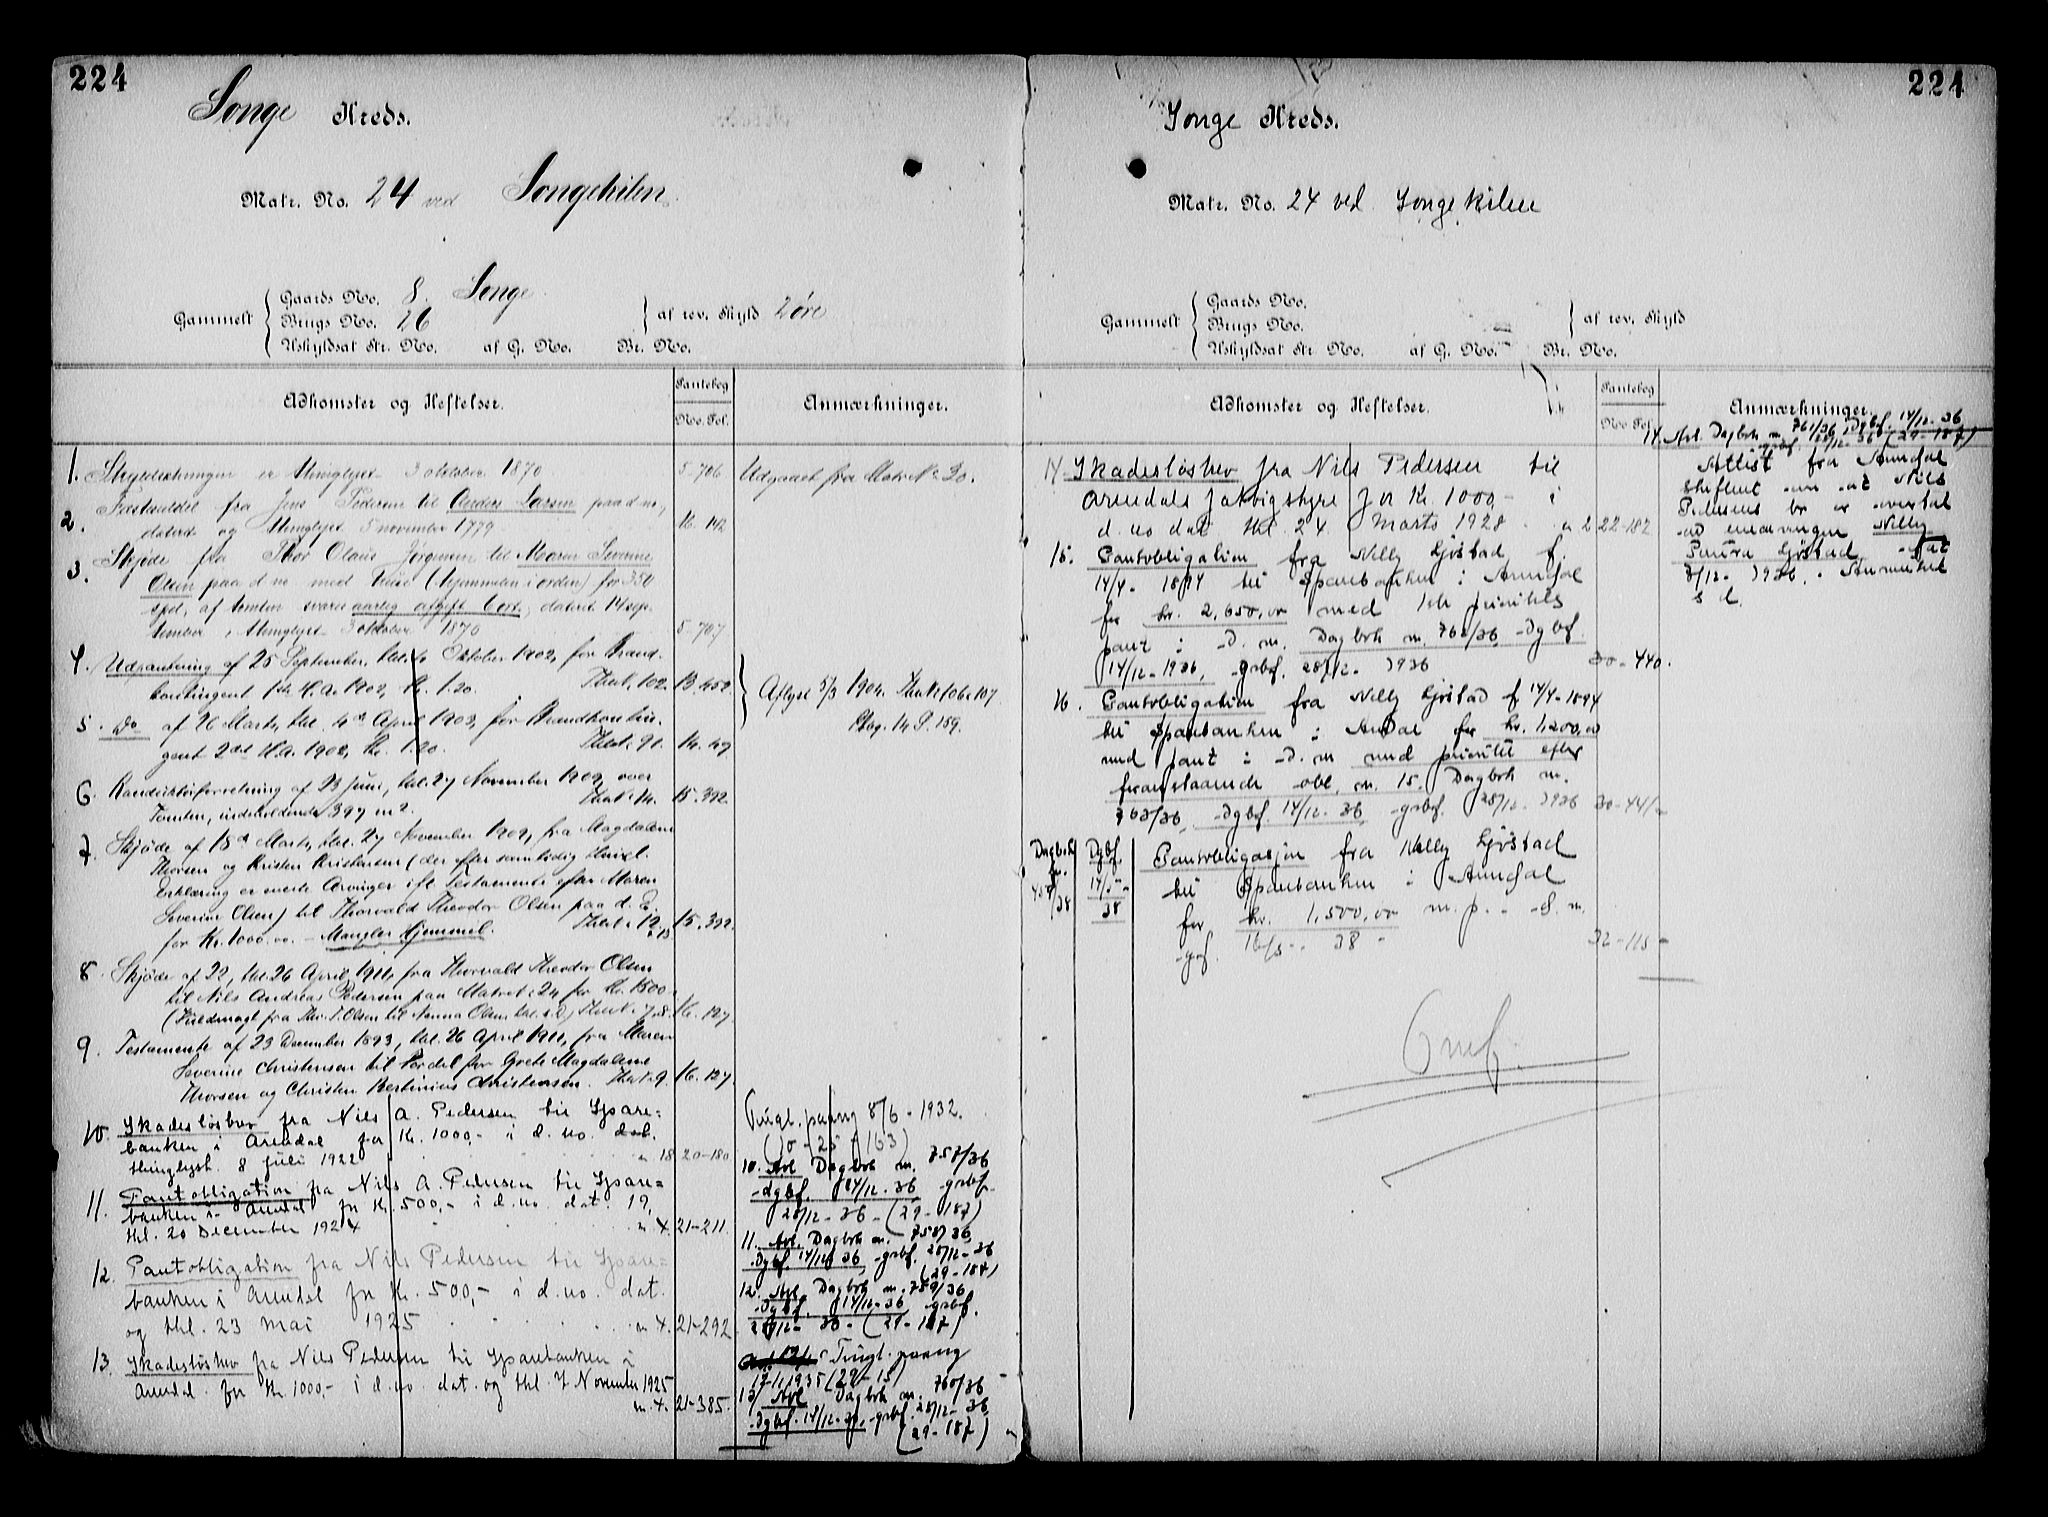 224
Songe Kreds.
Matr. No. 24 ved Songekilen
Gammelt
Gaards No. 8. Songe
Brugs No. 26
Uskyldsat Str. No. af G. No. Br. No.
af rev. Skyld 2 öre
Adkomster og Heftelser.
Pantebog
No. Fol.
Anmærkninger.
1. Skyldsætningen er thinglyst 3 oktober 1870 5-706 Udgaaet fra Matr No 30.
2. Fæsteseddel fra Jens Pedersen til Anders Larsen paa d no,
dateret og thinglyst 5 november 1779 16. 142
3. Skjöde fra Thor Olaus Jörgensen til Maren Severine
Olsen paa d no med huse (hjemmelen i orden) for 350
spd, af tomten svares aarlig afgift 6 ort, dateret 14 sep-
tember, thinglyst 3 oktober 1870 5-707
4. Udpantning af 25 September, thl. Oktober 1902, for Brand-
kontingent 1ste H.a. 1902, Kr. 1.20. Thct. 102. 13. 459.
Aflyst 5/3 1904.
5. Do af 26 Marts, thl. 4de April 1903, for Brandkontin-
gent 2det H.a. 1902, Kr. 1.20. Thct. 91. 14. 49.
6. Konduktörforretning af 23 Juni, thl. 27 November 1909, over
Tomten, indeholdende 397 m2. Thct. 14. 15. 392.
7. Skjöde af 18de Marts, thl. 27 November 1909, fra Magdalene
Thorsen og Kristen Kristensen (der efter samtidig thingl.
Erklæring er eneste Arvinger ifl. Testamente efter Maren
Severine Olsen) til Thorvald Theodor Olsen paa d. E.
for Kr. 1000.00. – Mangler Hjemmel. Thct. 12, 13 15. 392.
8. Skjöde af 22, thl. 26 April 1911, fra Thorvald Theodor Olsen
til Nils Andreas Pedersen paa Matr. 24 for Kr. 1500.
(Fuldmagt fra Thv. T. Olsen til Nanna Olsen thl. s. D.) Thct. 7, 8. 16. 127.
9. Testamente af 23 December 1893, thl. 26 April 1911, fra Maren
Severine Christensen til Fordel for Grete Magdalene
Thorsen og Christen Bertinius Christensen. Thct. 9. 16. 127.
10. Skadeslösbrev fra Nils A. Pedersen til Spare-
banken i Arendal for Kr. 1000,- i d. no. dat.
thinglyst. 8 juli 1922 n 18 20-180
11. Pantobligation fra Nils A. Pedersen til Spare-
banken i Arendal for Kr. 500,- i d. no. dat. 19,
thl. 20 December 1924 n. 4. 21-211.
12. Pantobligation fra Nils Pedersen til Spare-
banken i Arendal for Kr. 500,- i d. no. dat.
og thl. 23 mai 1925 n 4. 21-292
13. Skadeslösbrev fra Nils Pedersen til Sparebanken i
Arendal for Kr. 1000,- i d. no. dat. og thl. 7 November 1925
n. 4. 21-385.
Tingl. paany 8/6 - 1932.
10. Avl Dagbok nr. 757/36
- dgbf. 14/12-36, -grbf.
28/12-36 - (29-187)
11. Avl. Dagbok nr. 758/36,
- Dgbf. 14/12-36, -grbf. 28/12-36
(29-187)
12. Avl. Dagbok nr. 759/36
- Dgbf. 14/12-36 grbf.
28/12-36 - (29-187)
Tingl. paany
1935 (29-15)
13/ Avl Dagbok nr. 760/36
- Dgbf. 14/12-36, -grbf. 28/12-36
(29-187)
224
Songe Kreds.
Matr. No. 24 ved Songekilen
Gammelt
Gaards No.
Brugs No.
Uskyldsat Str. No. af G. No. Br. No.
af rev. Skyld
Adkomster og Heftelser.
Pantebog
No Fol.
Anmærkninger.
14. Avl. Dagbok nr. 761/36, Dgbf. 14/12-36
grbf. 28/12-36 (29-187)
14. Skadeslösbrev fra Nils Pedersen til
Arendals for Kr. 1000,- i
d. no dat thl. 24 Marts 1928 n 2 22-182
Attest fra Arendal
skifterett om at Nils
Pedersens bo er overtat
av enearvingen Nelly
Gjöstad, dat
1936.
s d.
15. Pantobligation fra Nelly Gjöstad f.
14/4-1894 til Sparebanken i Arendal
for kr. 2,650,00 med 1ste prioritets
pant i d. nr. Dagbok nr. 762/36 - Dgbf.
14/12-1936, -grbf. 28/12-1936 30-440.
16. Pantobligation fra Nelly Gjöstad f 14/4-1894
til Sparebanken i Ardal for kr. 1,200,00
med pant i d. nr med prioritet efter
foranstaaende obl. nr. 15. Dagbok nr.
763/36, -Dgbf. 14/12-36, -grbf. 28/12-1936 30-441
Dagbok nr. 457/38
Dgbf. 14/5-38
Pantobligasjon fra Nelly Gjöstad
til Sparebanken i Arendal
for kr. 1,500,00 m. p. i d. nr.
-grf. 16/5-38 - 32-115-